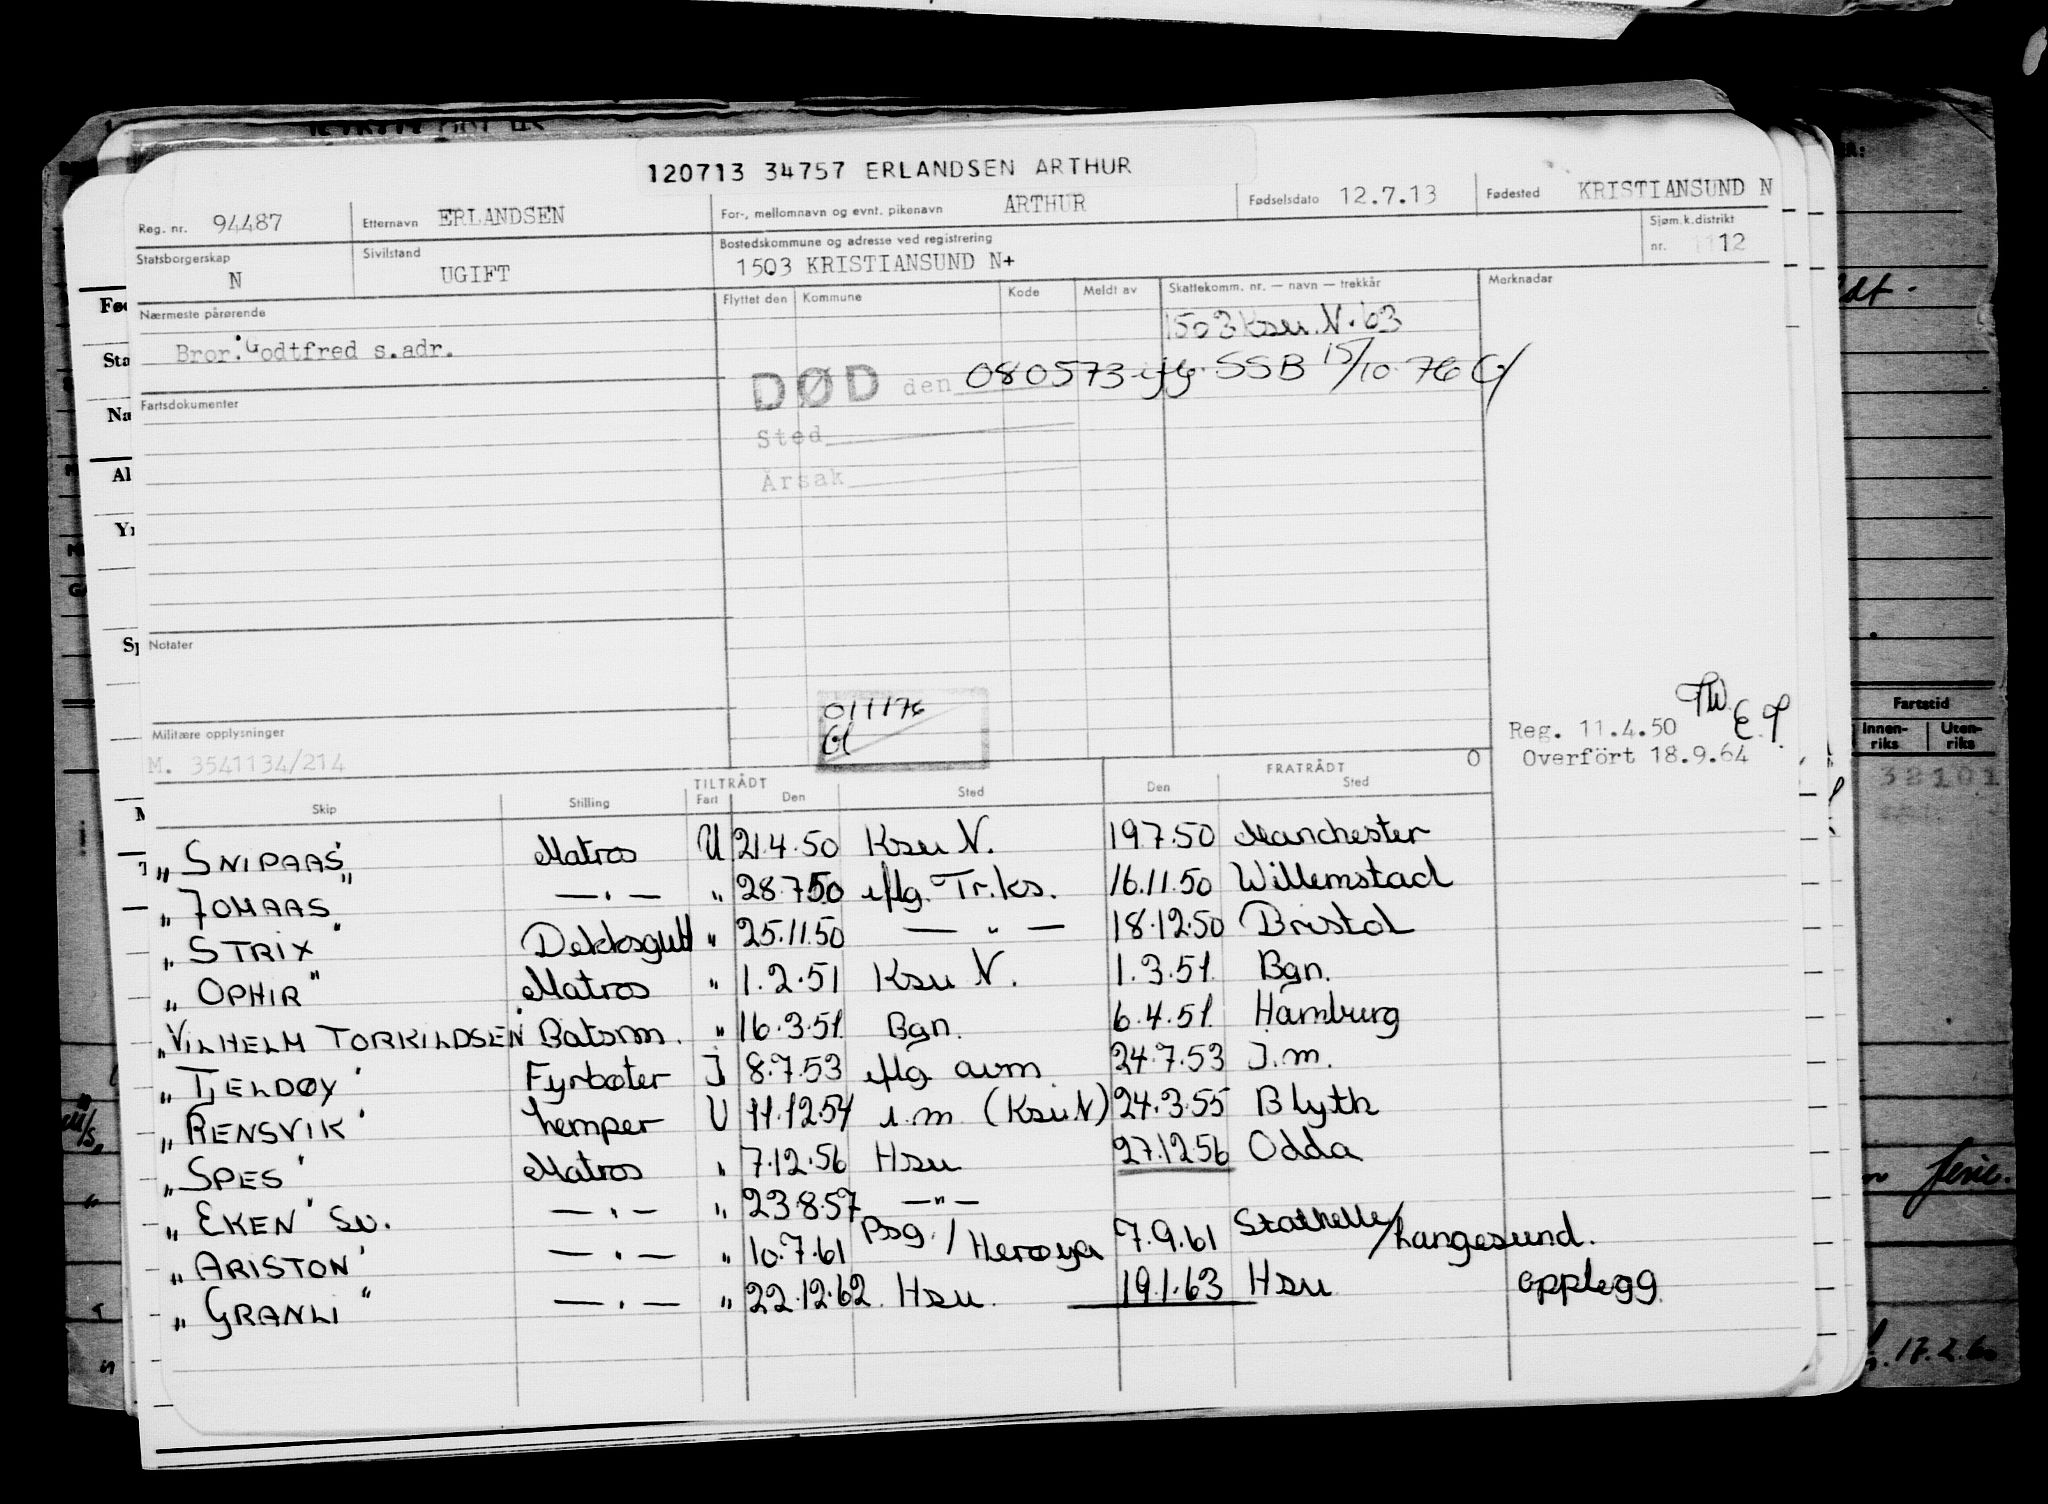 120713 34757 ERLANDSEN ARTHUR
Reg. nr. 94487 Etternavn ERLANDSEN For-, mellomnavn og evnt. pikenavn ARTHUR Fødselsdato 12.7.13 Fødested KRISTIANSUND N
Statsborgerskap N Sivilstand UGIFT Bostedskommune og adresse ved registrering 1503 KRISTIANSUND N+ Sjøm.k.distrikt nr. 12
Nærmeste pårørende Flyttet den Kommune Kode Meldt av Skattekomm. nr. — navn — trekkår Merknadar
1503 Ksu. N. '63
Bror: Godtfred s.adr.
DØD den 080573 iflg. SSB 15/10 76
Fartsdokumenter
Sted
Årsak
Notater
011176
Militære opplysninger
M. 3541134/214
Reg. 11.4.50
E.T.
Overført 18.9.64
O
TILTRÅDT FRATRÅDT
Skip Stilling Fart Den Sted Den Sted
"SNIPAAS" Matros U 21.4.50 Ksu N. 19.7.50 Manchester
"JOMAAS" — " — " 28.7.50 iflg. Tr.ks. 16.11.50 Willemstad
"STRIX" Dekksgutt " 25.11.50 — " — 18.12.50 Bristol
"OPHIR" Matros " 1.2.51 Ksu N. 1.3.51 Bgn.
"VILHELM TORKILDSEN" Båtsm. " 16.3.51 Bgn. 6.4.51 Hamburg
"TJELDØY" Fyrbøter I 8.7.53 iflg avm 24.7.53 I.m.
"RENSVIK" Lemper U 11.12.54 i.m. (Ksu N) 24.3.55 Blyth
"SPES" Matros " 7.12.56 Hsu 27.12.56 Odda
"EKEN" Sv. — " — " 23.8.57 — " —
"ARISTON" — " — " 10.7.61 Psg./Herøya 7.9.61 Stathelle/Langesund.
"GRANLI" — " — " 22.12.62. Hsu. 19.1.63 Hsu opplegg
Fartstid
Innenriks Utenriks
32101
ferie.
17.2.60